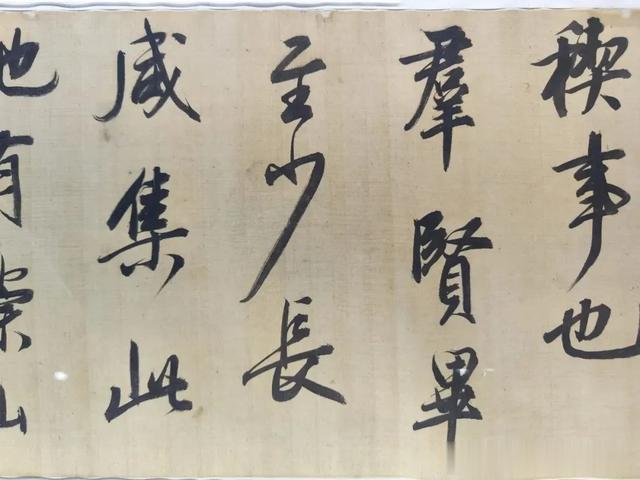 稧事也
羣賢畢
至少長
咸集此
地有崇山